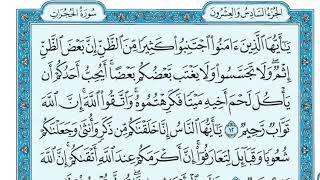 الجزء السادس والعشرون
سورة الحجرات
يَٰٓأَيُّهَا ٱلَّذِينَ ءَامَنُوا۟ ٱجْتَنِبُوا۟ كَثِيرًا مِّنَ ٱلظَّنِّ إِنَّ بَعْضَ ٱلظَّنِّ
إِثْمٌ ۖ وَلَا تَجَسَّسُوا۟ وَلَا يَغْتَب بَّعْضُكُم بَعْضًا ۚ أَيُحِبُّ أَحَدُكُمْ أَن
يَأْكُلَ لَحْمَ أَخِيهِ مَيْتًا فَكَرِهْتُمُوهُ ۚ وَٱتَّقُوا۟ ٱللَّهَ ۚ إِنَّ ٱللَّهَ
تَوَّابٌ رَّحِيمٌ ١٢ يَٰٓأَيُّهَا ٱلنَّاسُ إِنَّا خَلَقْنَٰكُم مِّن ذَكَرٍ وَأُنثَىٰ وَجَعَلْنَٰكُمْ
شُعُوبًا وَقَبَآئِلَ لِتَعَارَفُوٓا۟ ۚ إِنَّ أَكْرَمَكُمْ عِندَ ٱللَّهِ أَتْقَىٰكُمْ ۚ إِنَّ ٱللَّهَ